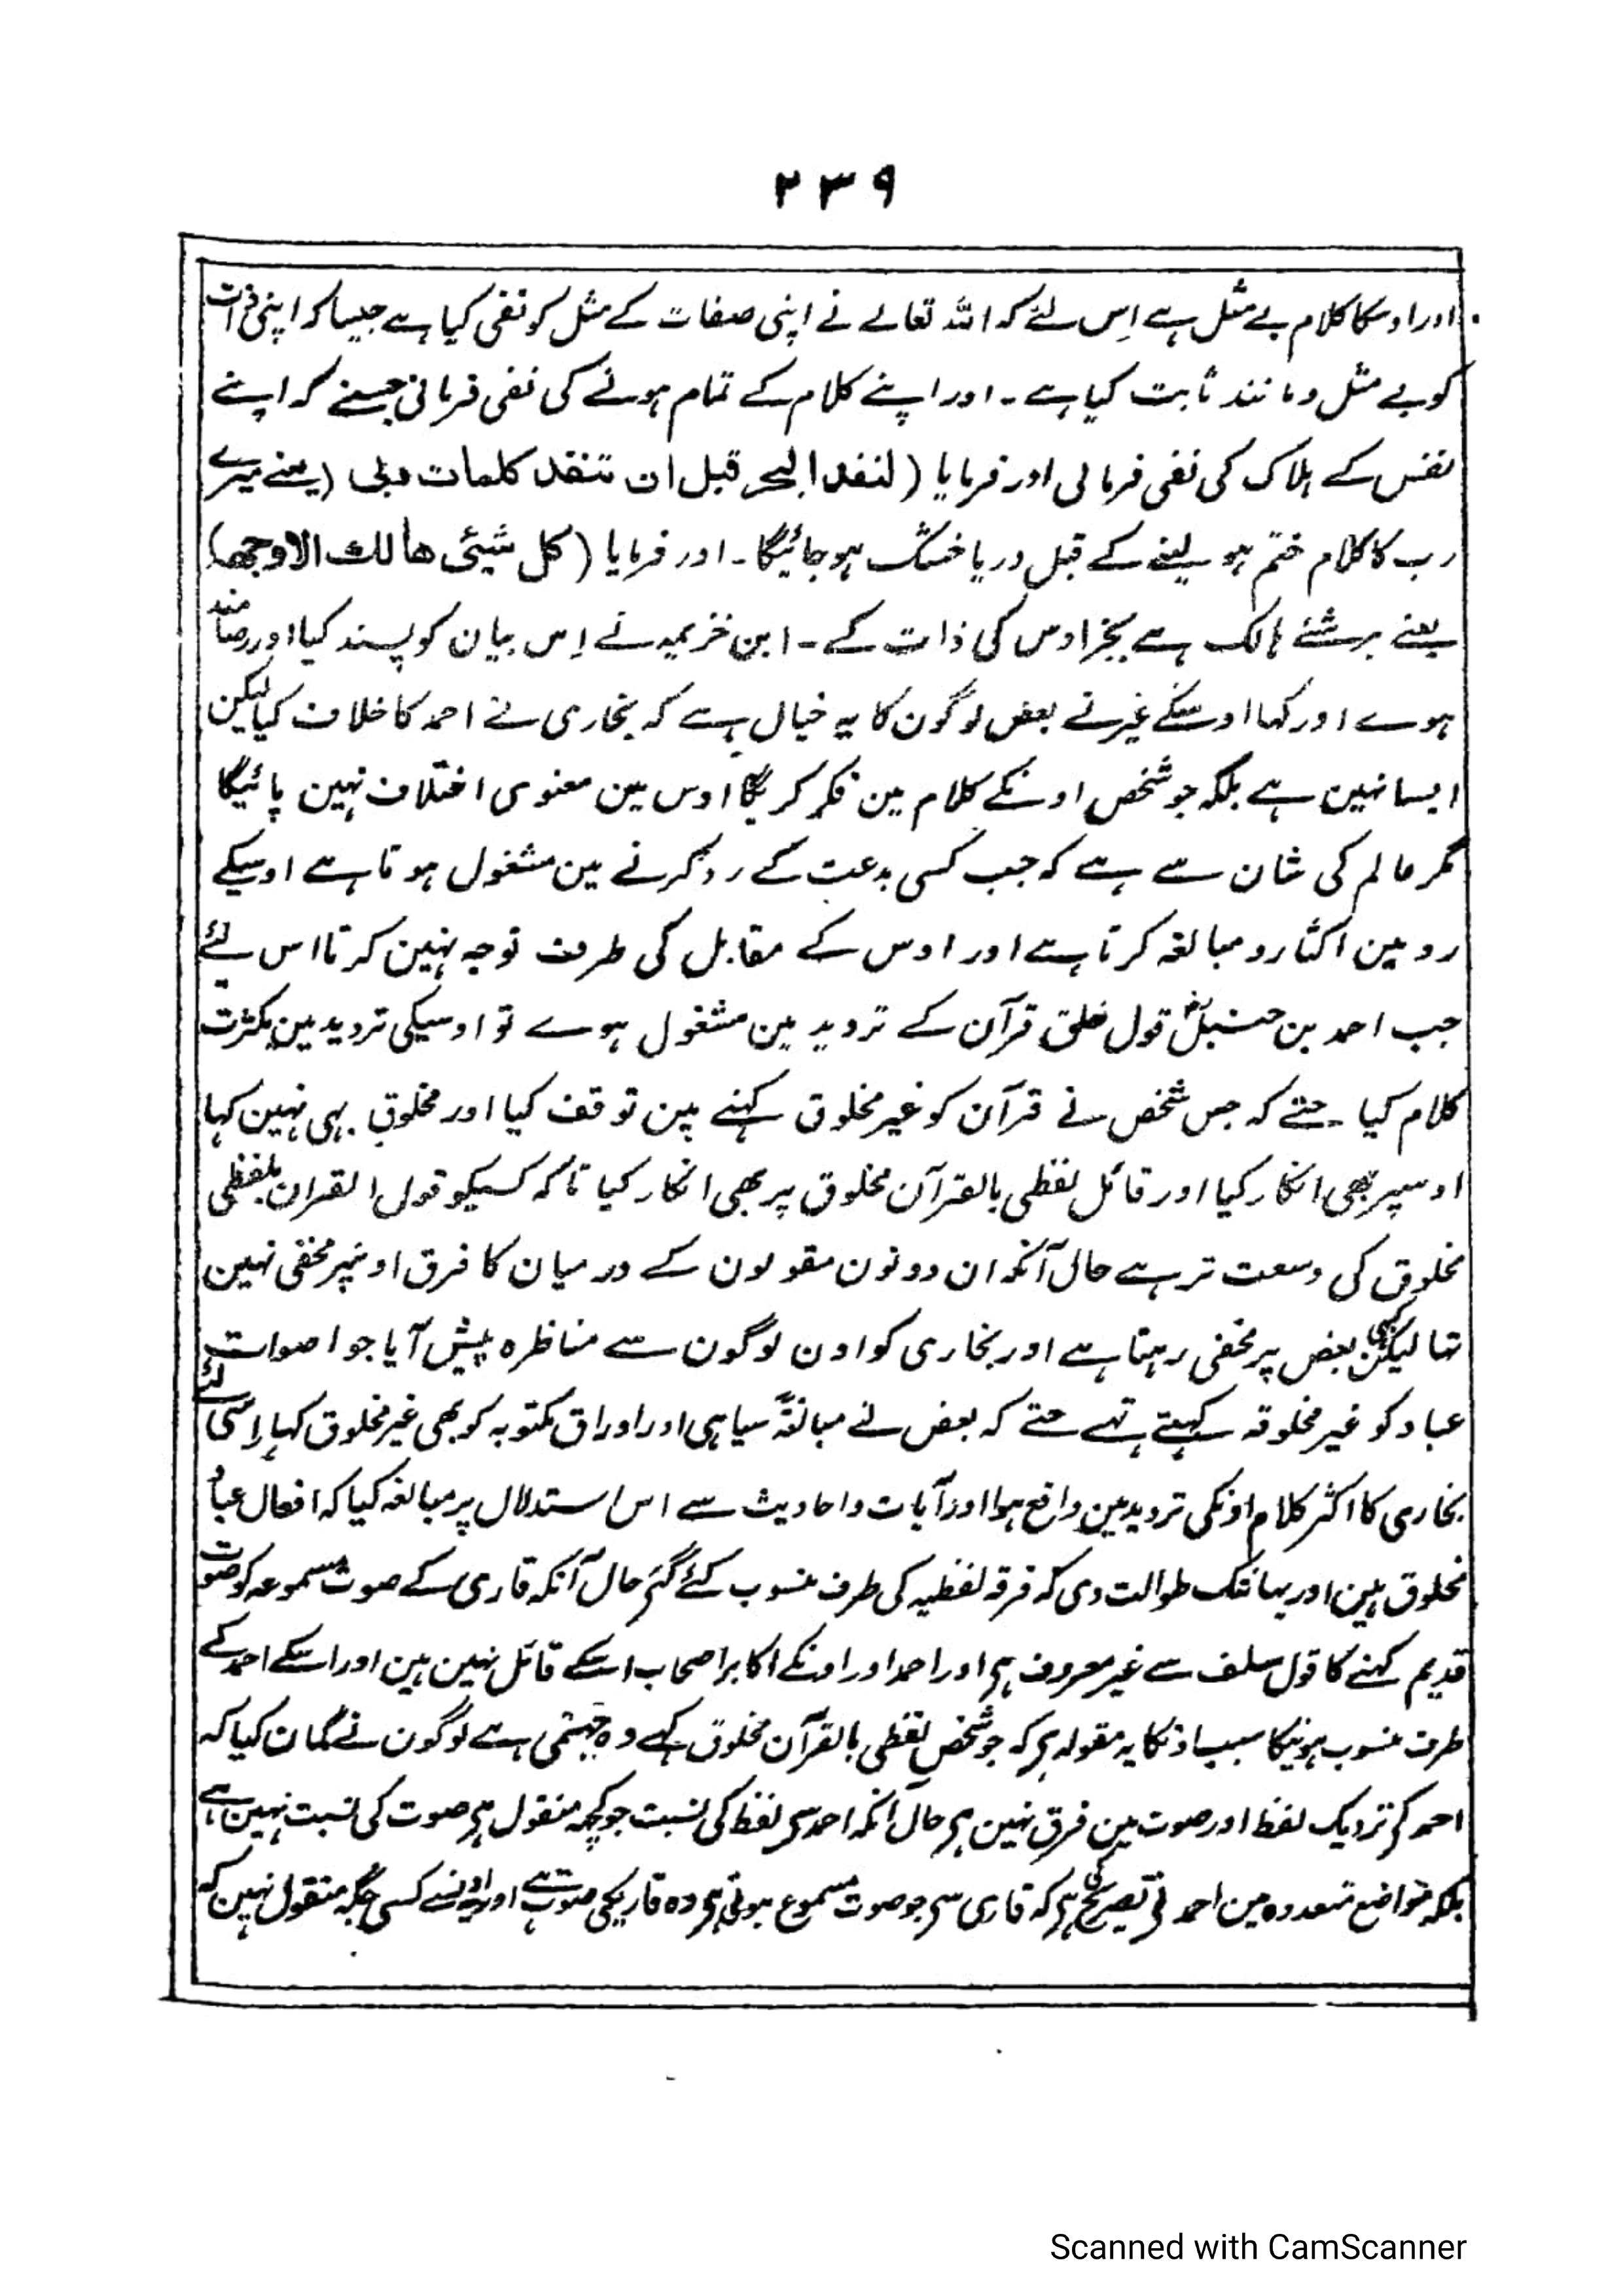 ۲۳۹
اور اوسکا کلام بے مثل ہے اِس لئے کہ اللہ تعالے نے اپنی صفات کے مثل کو نفی کیا ہے جیسا کہ اپنی ذات
کو بے مثل و مانند ثابت کیا ہے ۔ اور اپنے کلام کے تمام ہونے کی نفی فرمائی جیسے کہ اپنے
نفس کے ہلاک کی نفی فرمائی اور فرمایا (لنفد البحر قبل ان تنفد کلمات ربی (یعنے میرے
رب کا کلام ختم ہو لینے کے قبل دریا خشک ہو جائیگا ۔ اور فرمایا (کل شیئی ھالك الا وجھہ)
یعنے ہر شئے ہالک ہے بجز اوس کی ذات کے ۔ ابن خزیمہ نے اِس بیان کو پسند کیا اور رضامند
ہوے اور کہا اوسکے غیر نے بعض لوگون کا یہ خیال ہے کہ بخاری نے احمد کا خلاف کیا لیکن
ایسا نہین ہے بلکہ جو شخص اونکے کلام مین فکر کریگا اوس مین معنوی اختلاف نہین پائیگا
مگر عالم کی شان سے ہے کہ جب کسی بدعت کے رد کرنے مین مشغول ہوتا ہے اوسیکے
رد مین اکثار و مبالغہ کرتا ہے اور اوس کے مقابل کی طرف توجہ نہین کرتا اس لئے
جب احمد بن حنبلؒ قول خلق قرآن کے تردید مین مشغول ہوے تو اوسیکی تردید مین بکثرت
کلام کیا ۔ حتے کہ جس شخص نے قرآن کو غیر مخلوق کہنے مین توقف کیا اور مخلوق بہی نہین کہا
اوسپر بھی انکار کیا اور قائل لفظی بالقرآن مخلوق پر بھی انکار کیا تاکہ کسیکو قول القران بلفظی
مخلوق کی وسعت نر ہے حال آنکہ ان دونون مقولون کے درمیان کا فرق اونپر مخفی نہین
تہا لیکن کبہی بعض پر مخفی رہتا ہے اور بخاری کو اون لوگون سے مناظرہ پیش آیا جو اصوات
عباد کو غیر مخلوقہ کہتے تہے حتے کہ بعض نے مبالغۃً سیاہی اور اوراق مکتوبہ کو بھی غیر مخلوق کہا اِسی لئے
بخاری کا اکثر کلام اونکی تردید مین واقع ہوا اور آیات و احادیث سے اس استدلال پر مبالغہ کیا کہ افعال عباد
مخلوق ہین اور یہانتک طوالت دی کہ فرقہ لفظیہ کی طرف منسوب کئے گئے حال آنکہ قاری کے صوت مسموعہ کو صوت
قدیم کہنے کا قول سلف سے غیر معروف ہے اور احمد اور اونکے اکابر اصحاب اسکے قائل نہین ہین اور اسکے احمد کے
طرف منسوب ہونیکا سبب اونکا یہ مقولہ ہے کہ جو شخص لفظی بالقرآن مخلوق کہے وہ جہیمی ہے لوگون نے گمان کیا کہ
احمد کے نزدیک لفظ اور صوت مین فرق نہین ہے حال آنکہ احمد سے لفظ کی نسبت جو کچہہ منقول ہے صوت کی نسبت نہین ہے
بلکہ مواضع متعددہ مین احمد نے تصریح کی ہے کہ قاری سے جو صوت مسموع ہوتی ہے وہ قاریکی صوت ہے اور اونسے کسی جگہ منقول نہین کہ
Scanned with CamScanner